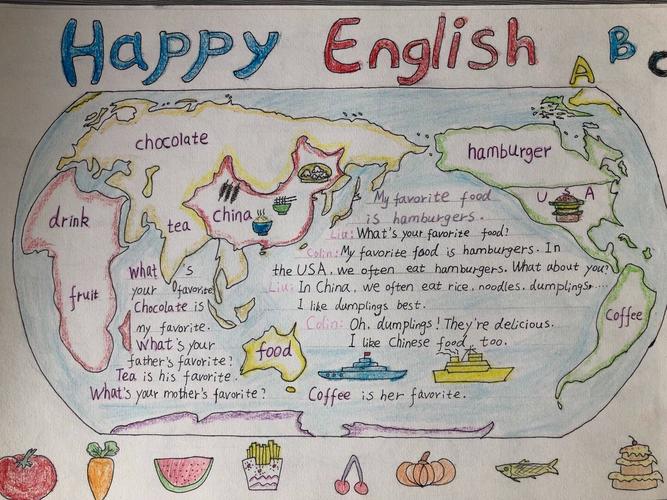 Happy English
A B C
chocolate
hamburger
drink
tea
china
U A
fruit
Coffee
food
My favorite food
is hamburgers.
Liu: What's your favorite food?
Colin: My favorite food is hamburgers. In
the USA, we often eat hamburgers. What about you?
Liu: In China, we often eat rice, noodles, dumplings,...
I like dumplings best.
Colin: Oh, dumplings! They're delicious.
I like Chinese food, too.
What 's
your favorite
Chocolate is
my favorite.
What's your
father's favorite?
Tea is his favorite.
What's your mother's favorite? Coffee is her favorite.